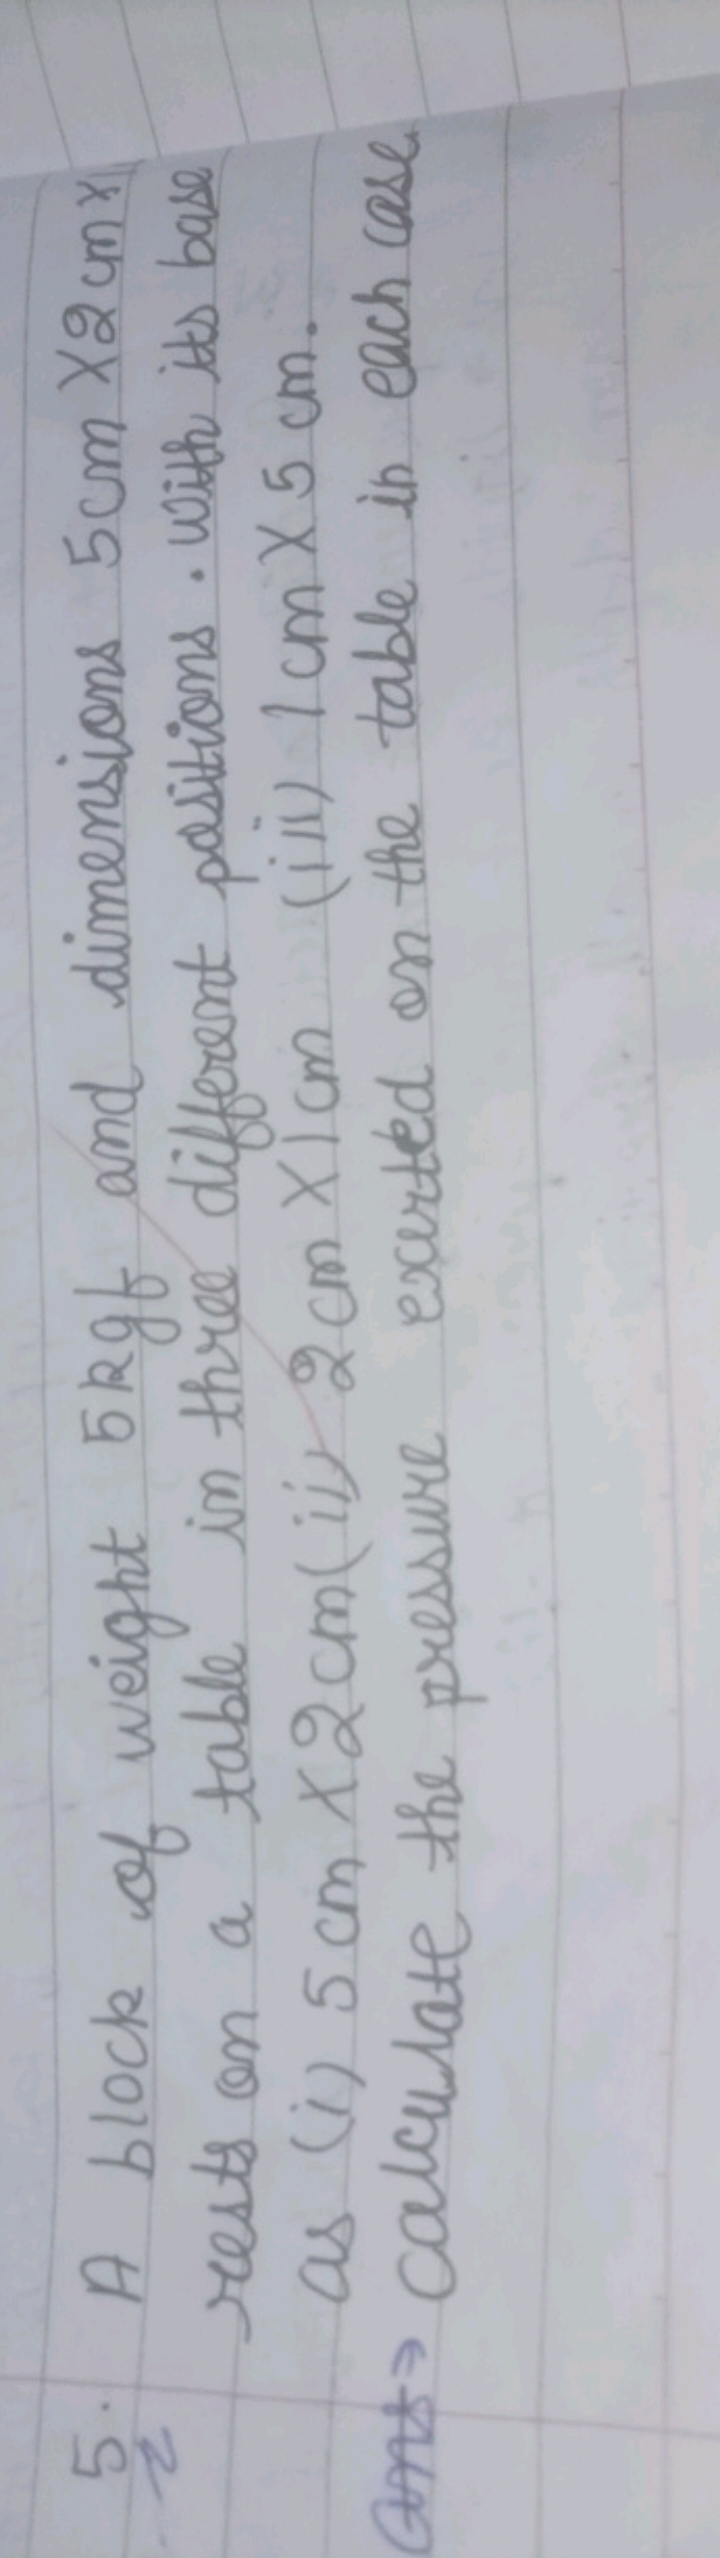 5. A block of weight 5kgf and dimensions 5cm X2cmx
rests on a table in three different positions. with its base
as (i) 5 cm x2cm(ii) 2cm X1cm (iii) 1cm X5cm.
Ans⇒ calculate the pressure exerted on the table in each case